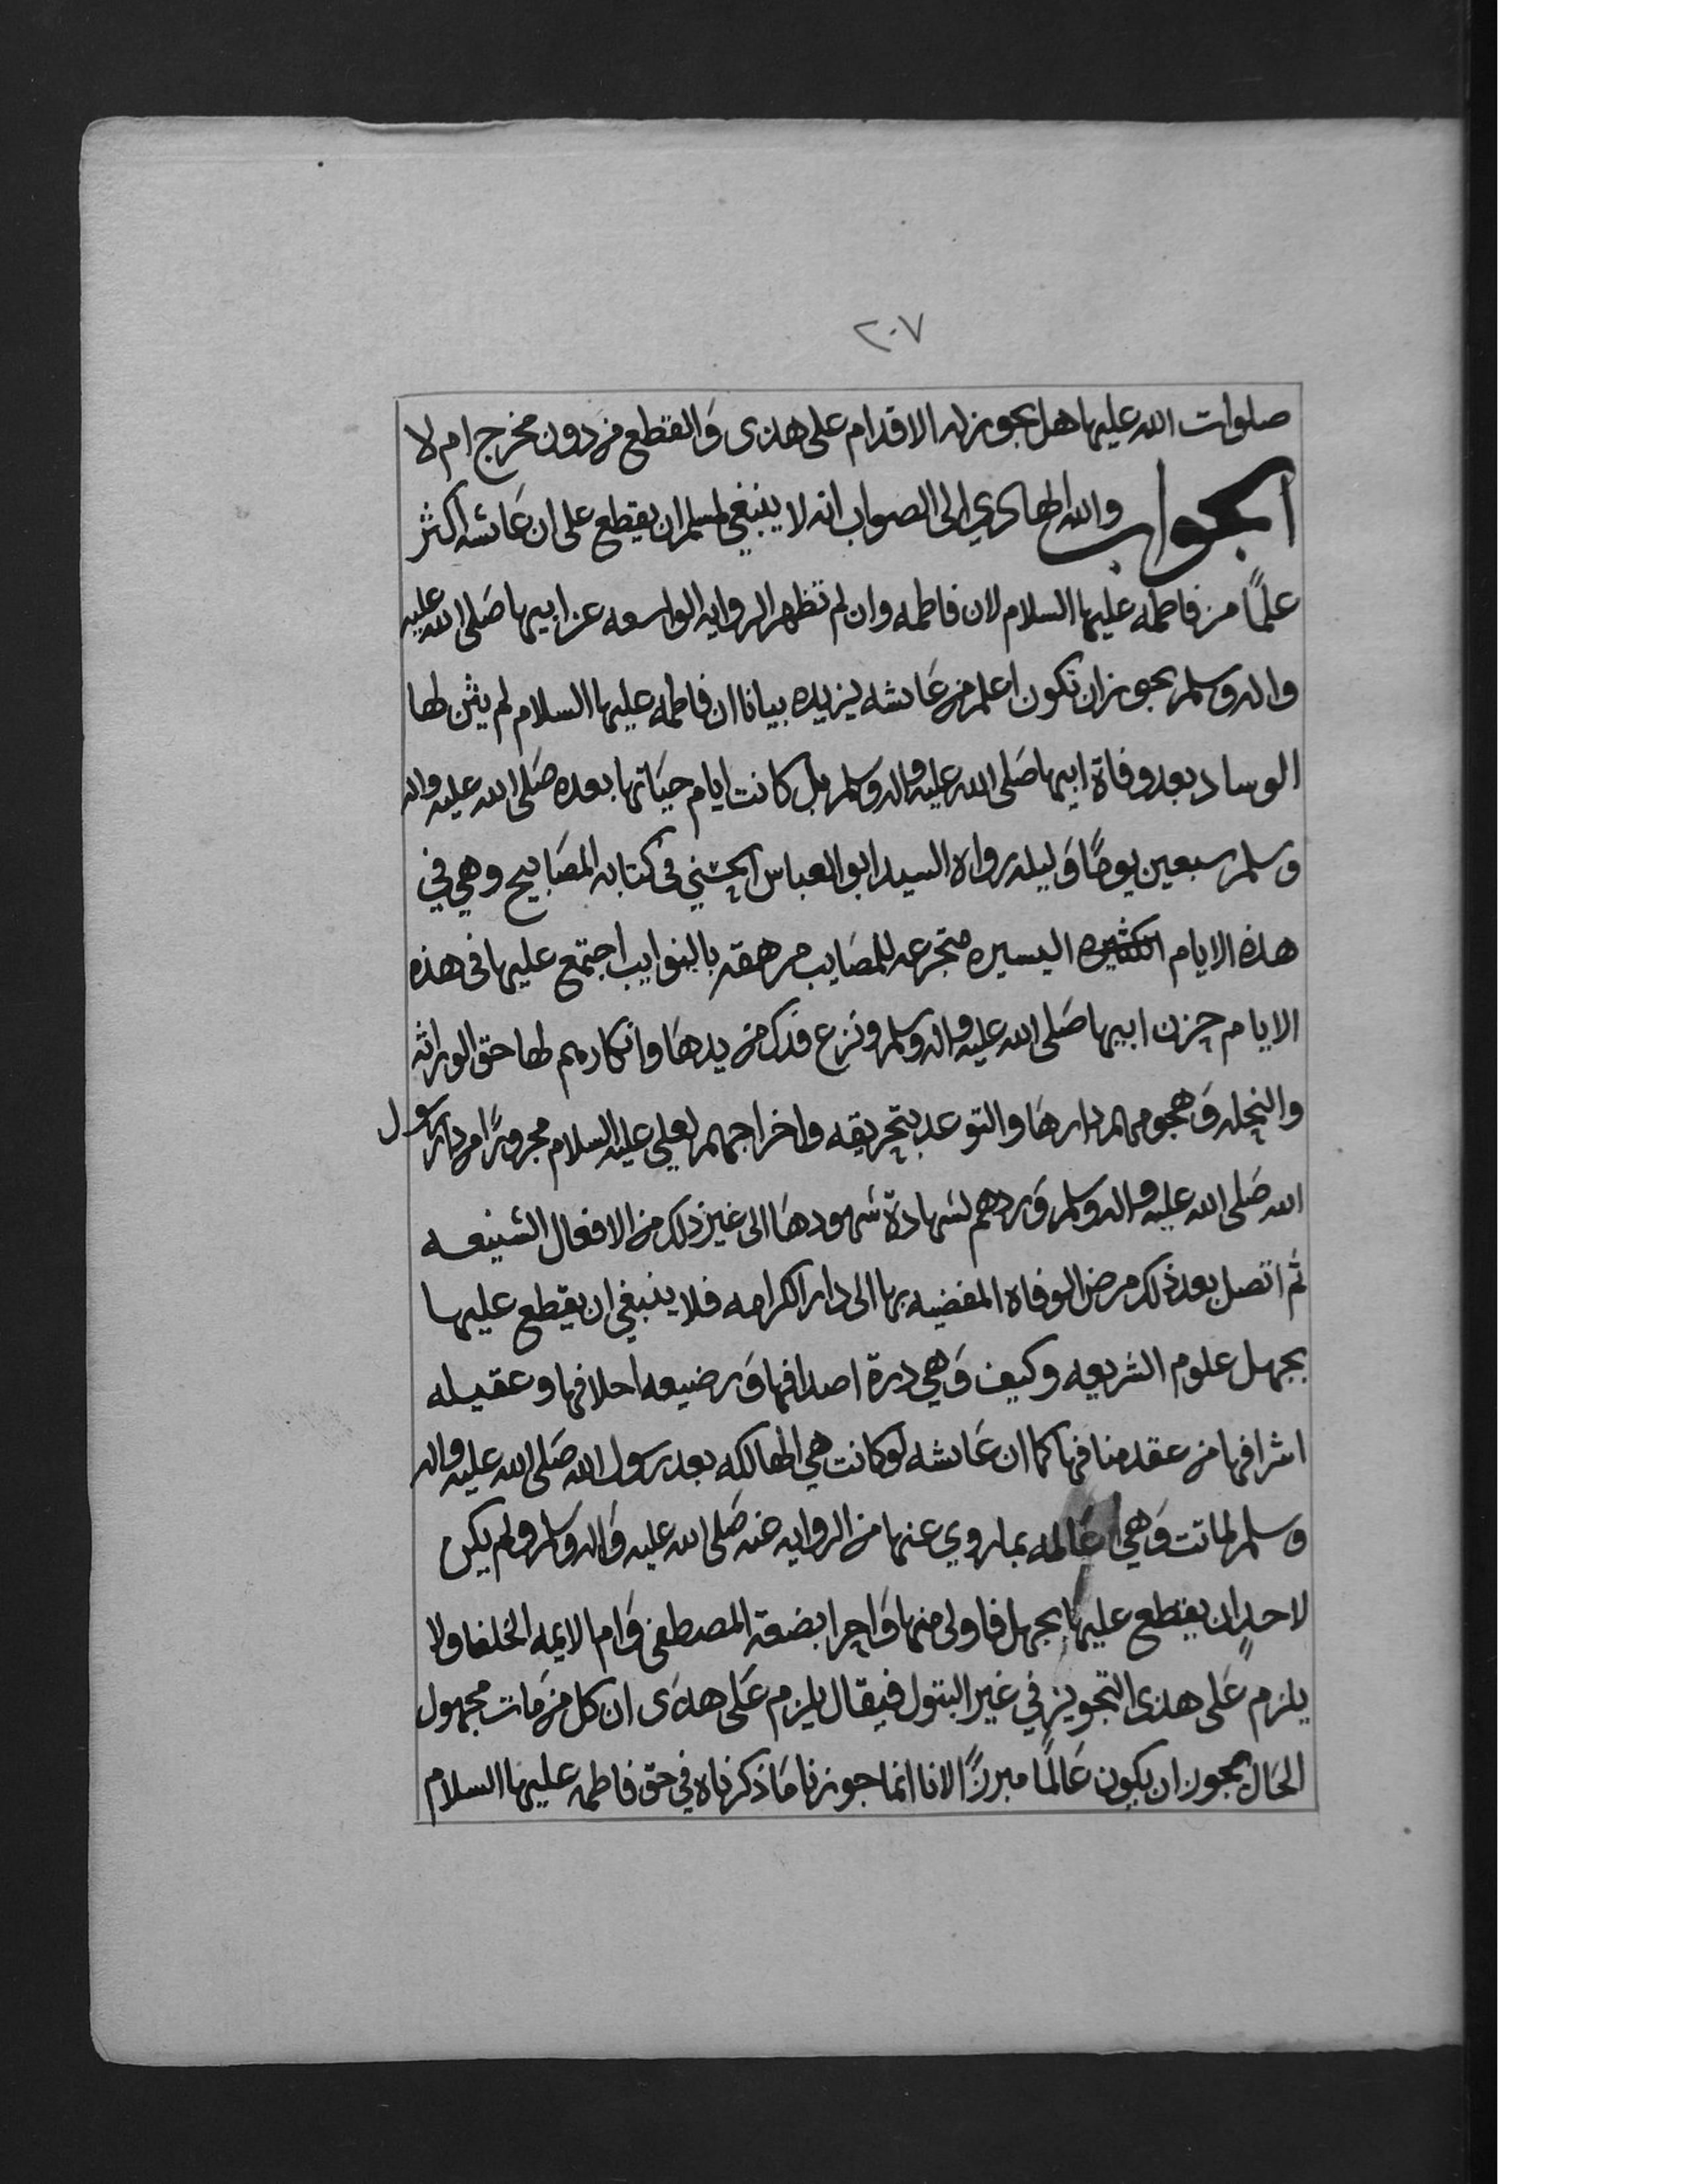 ٢٠٧
صلوات الله عليها هل يجوز له الاقدام على هذى والقطع من دون مخرج ام لا
الجواب والله الهادي الى الصواب انه لا ينبغي لمسلم ان يقطع على ان عائشه اكثر
علمًا من فاطمه عليها السلام لان فاطمه وان لم تظهر الروايه الواسعه عن ابيها صلى الله عليه
واله وسلم يجوز ان تكون اعلم من عائشه يزيده بيانا ان فاطمه عليها السلام لم يثن لها
الوساد بعد وفاة ابيها صلى الله عليه واله وسلم بل كانت ايام حياتها بعده صلى الله عليه واله
وسلم سبعين يومًا وليله رواه السيد ابو العباس الحسني في كتابه المصابيح وهي في
هذه الايام الكثيره اليسيره متجرعه للمصايب مرهقه بالنوايب اجتمع عليها في هذه
الايام حزن ابيها صلى الله عليه واله وسلم ونزع فدك من يدها وانكارهم لها حق الوراثه
والنحله وهجومهم دارها والتوعد بتحريقه واخراجهم لعلي عليه السلام مجرورًا من دار رسول
الله صلى الله عليه واله وسلم وردهم لشهادة شهودها الى غير ذلك من الافعال الشنيعه
ثم اتصل بعد ذلك مرض الوفاه المفضيه بها الى دار الكرامه فلا ينبغي ان يقطع عليها
بجهل علوم الشريعه وكيف وهي درة اصدافها ورضيعه اخلافها وعقيله
اشرافها من عقد منافها كما ان عائشه لو كانت هي الهالكه بعد رسول الله صلى الله عليه واله
وسلم لماتت وهي عالمه بما روي عنها من الروايه عنه صلى الله عليه واله وسلم ولم يكن
لاحدٍ ان يقطع عليها بجهل فاولى منها واحرا بضعة المصطفى وام الايمه الخلفا ولا
يلزم على هذى التجويز في غير البتول فيقال يلزم على هذى ان كل من مات مجهول
الحال يجوز ان يكون عالمًا مبرزًا لانا انما جوزنا ما ذكرناه في حق فاطمه عليها السلام